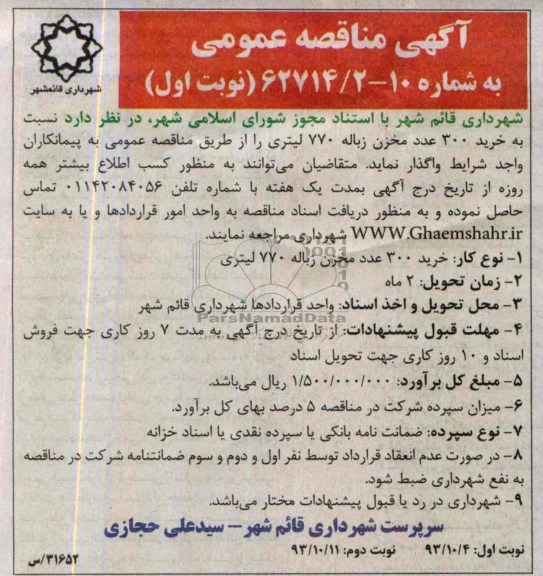 آگهی مناقصه عمومی
به شماره ۱۰-۶۲۷۱۴/۲ (نوبت اول)
شهرداری قائمشهر
شهرداری قائم شهر با استناد مجوز شورای اسلامی شهر، در نظر دارد نسبت
به خرید ۳۰۰ عدد مخزن زباله ۷۷۰ لیتری را از طریق مناقصه عمومی به پیمانکاران
واجد شرایط واگذار نماید. متقاضیان می‌توانند به منظور کسب اطلاع بیشتر همه
روزه از تاریخ درج آگهی بمدت یک هفته با شماره تلفن ۰۱۱۴۲۰۸۴۰۵۶ تماس
حاصل نموده و به منظور دریافت اسناد مناقصه به واحد امور قراردادها و یا به سایت
WWW.Ghaemshahr.ir شهرداری مراجعه نمایند.
۱- نوع کار: خرید ۳۰۰ عدد مخزن زباله ۷۷۰ لیتری
۲- زمان تحویل: ۲ ماه
۳- محل تحویل و اخذ اسناد: واحد قراردادها شهرداری قائم شهر
ParsNamadData
۴- مهلت قبول پیشنهادات: از تاریخ درج آگهی به مدت ۷ روز کاری جهت فروش
اسناد و ۱۰ روز کاری جهت تحویل اسناد
۵- مبلغ کل برآورد: ۱/۵۰۰/۰۰۰/۰۰۰ ریال می‌باشد.
۶- میزان سپرده شرکت در مناقصه ۵ درصد بهای کل برآورد.
۷- نوع سپرده: ضمانت نامه بانکی یا سپرده نقدی یا اسناد خزانه
۸- در صورت عدم انعقاد قرارداد توسط نفر اول و دوم و سوم ضمانتنامه شرکت در مناقصه
به نفع شهرداری ضبط شود.
۹- شهرداری در رد یا قبول پیشنهادات مختار می‌باشد.
سرپرست شهرداری قائم شهر - سیدعلی حجازی
نوبت اول: ۹۳/۱۰/۴ نوبت دوم: ۹۳/۱۰/۱۱
۳۱۶۵۲/س